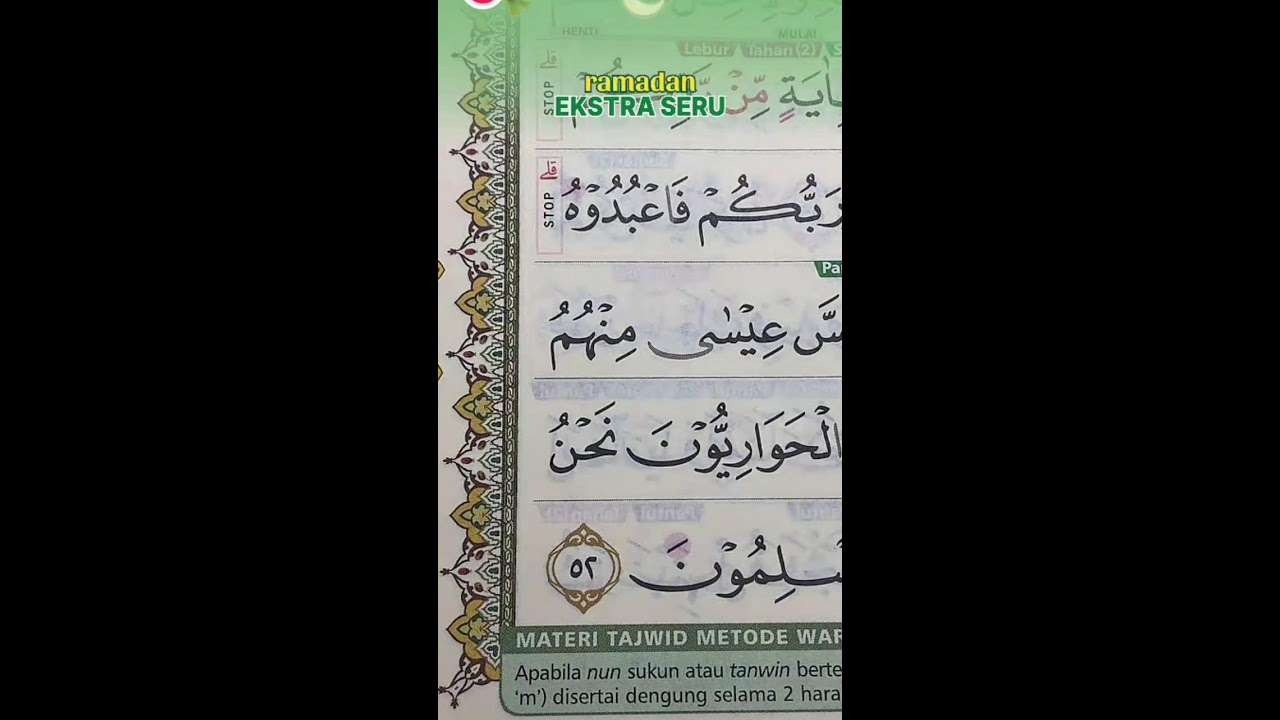 HENTI MULAI
Lebur Tahan (2)
ramadan
EKSTRA SERU
STOP قلے
بِاٰيَةٍ مِّنْ
STOP قلے
رَبُّكُمْ فَاعْبُدُوْهُ
عِيْسٰى مِنْهُمُ
الْحَوَارِيُّوْنَ نَحْنُ
٥٢
MATERI TAJWID METODE WAR
Apabila nun sukun atau tanwin berte
‘m’) disertai dengung selama 2 hara